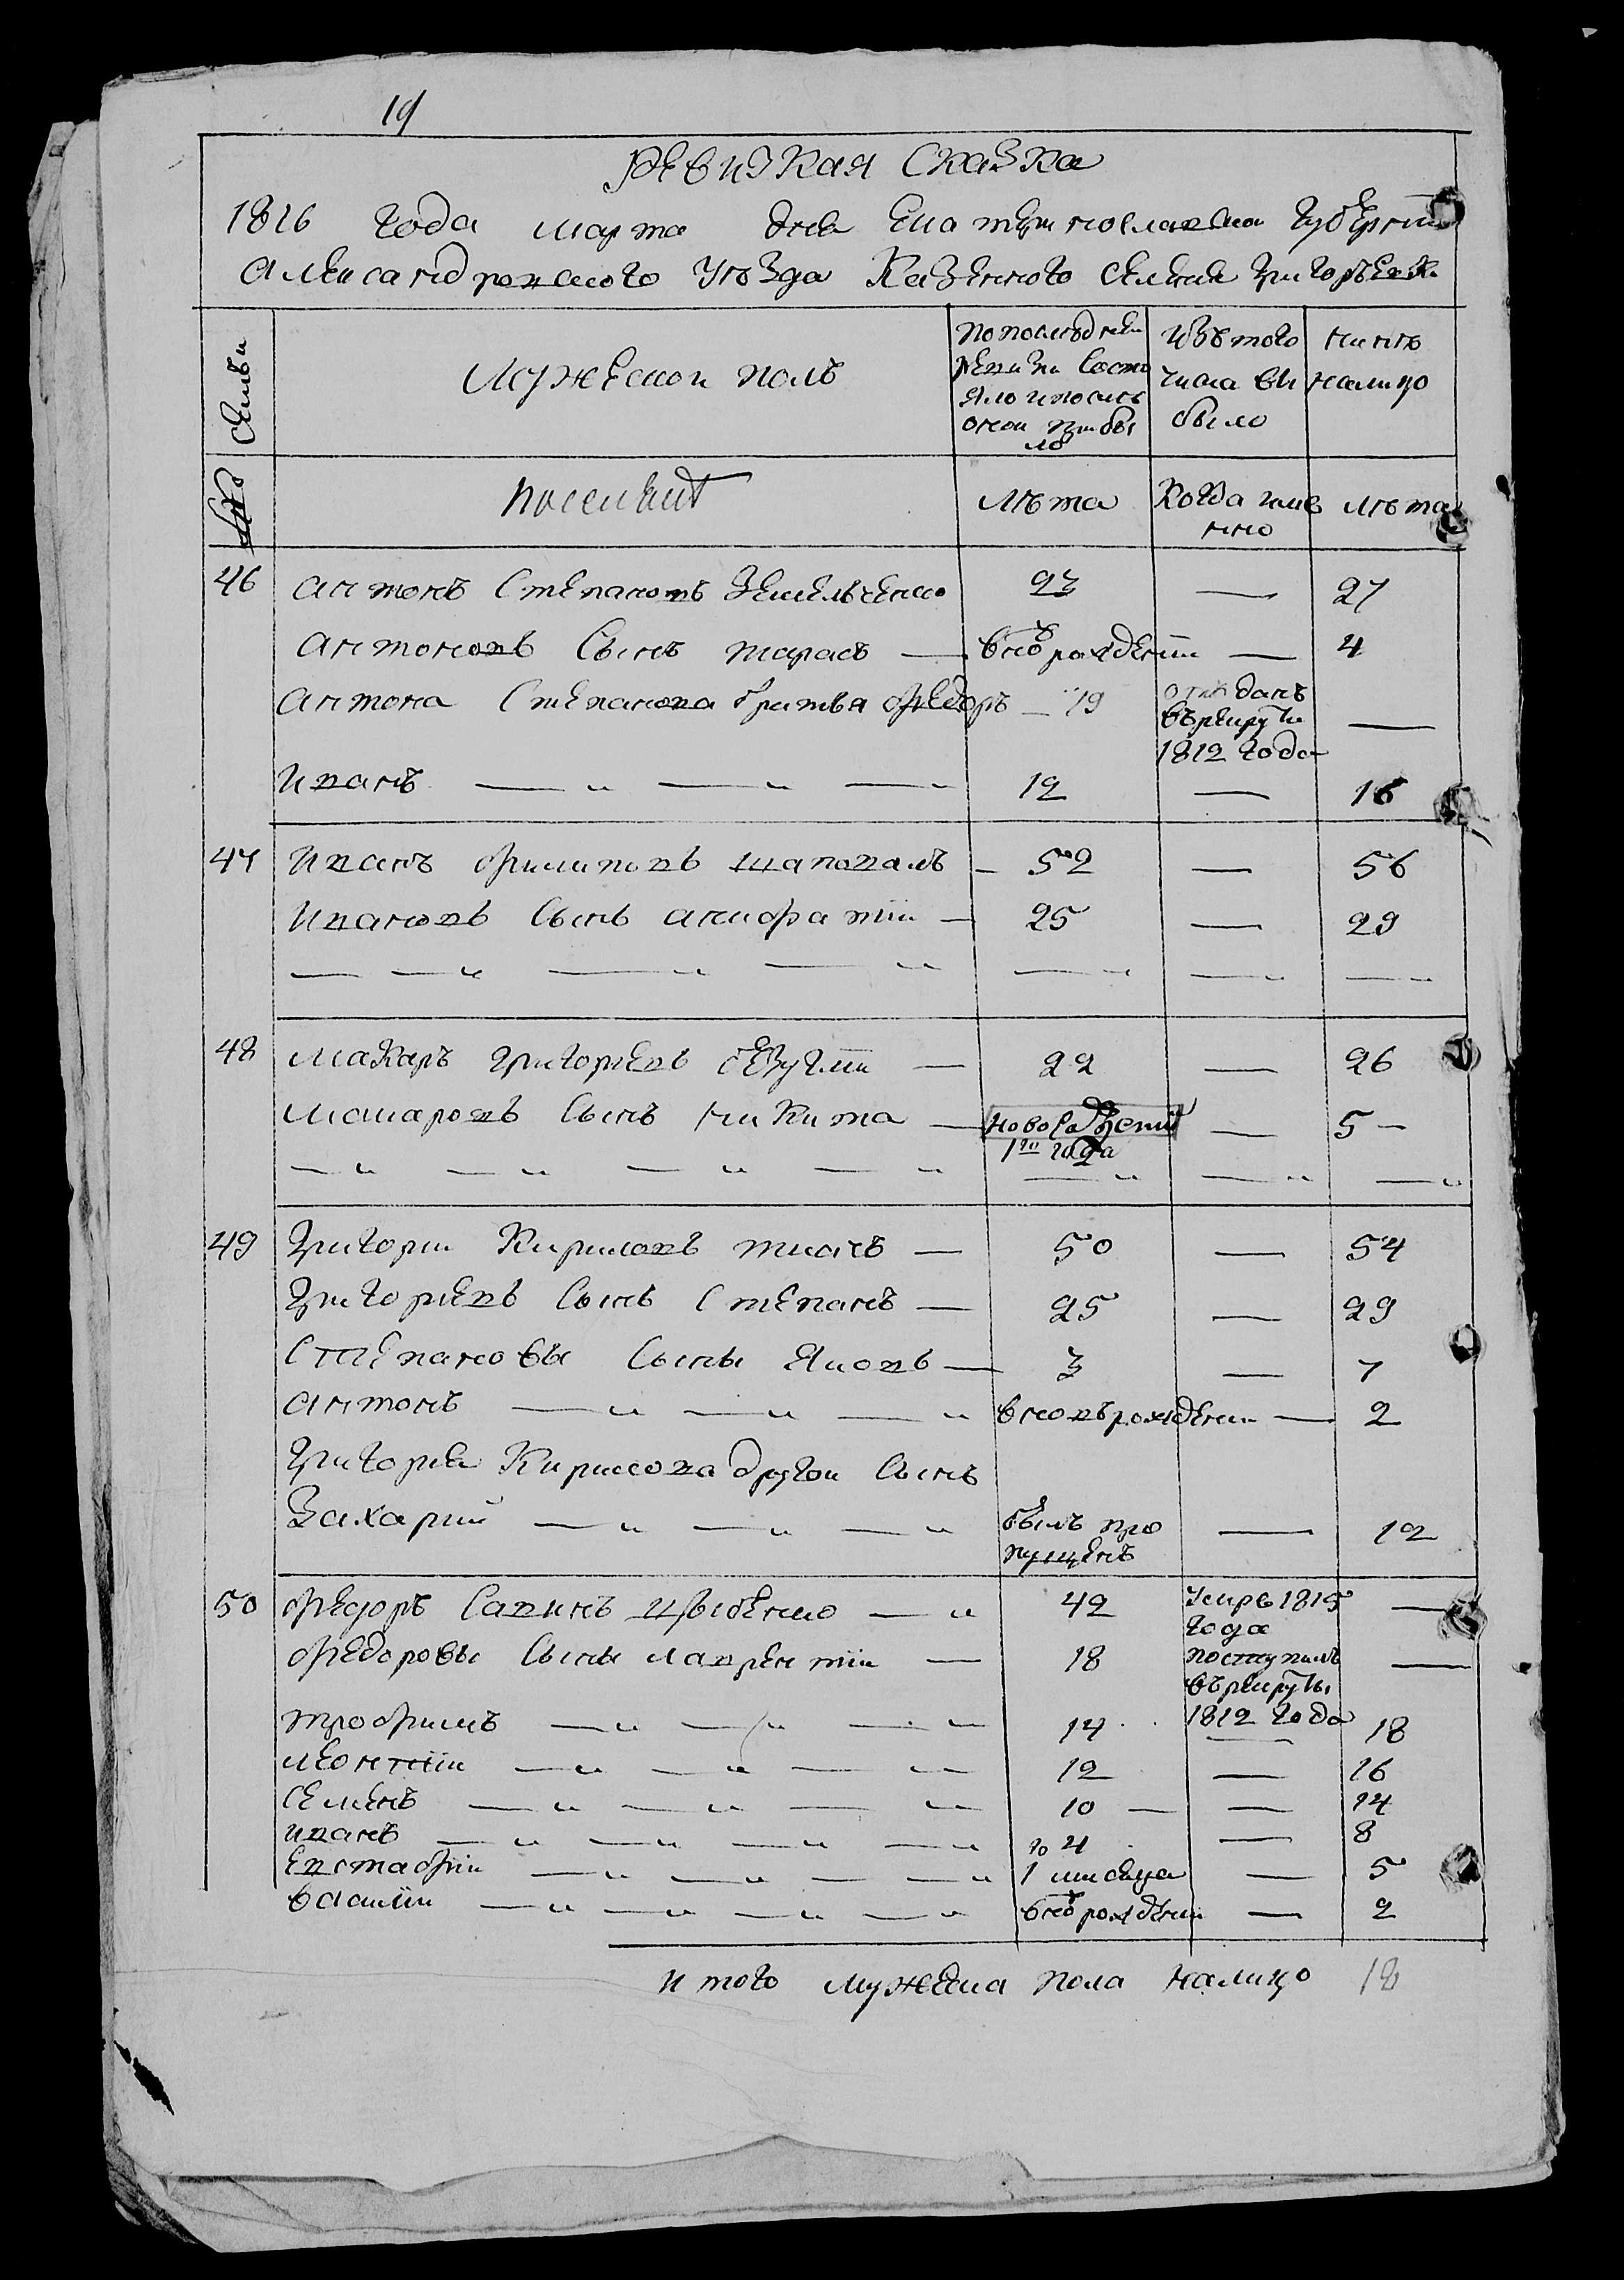 19
Ревизкая сказка
1816 года марта дня Екатериновлавска губернии
Александровского уезда Казенного селения Григорьевки
Семьи
Мужескои полъ
По последнеи ревизии состояло и после онои прибыло
Изъ того числа выбыло
Ныне на лицо
Лета
Когда именно
Лета
46 Антонъ Степановъ Земельченко 23 — 27
Антоновъ сынъ Тарасъ — вновъ рожденіи — 4
Антона Степанова братья Федоръ — 19 отданъ въ рекруты 1812 года —
Иванъ — „ — „ — „ 12 — 16
47 Иванъ Филиповъ Шаповалъ — 52 — 56
Ивановъ сынъ Анифатіи — 25 — 29
48 Макаръ Григорьевъ Безугліи — 22 — 26
Макаровъ сынъ Никита — новорожденій 1го года — 5 —
49 Григории Кириловъ Ткачъ — 50 — 54
Григорьевъ сынъ Степанъ — 25 — 29
Степановы сыны Яковъ — 3 — 7
Антонъ — „ — „ — „ вновъ рождении — 2
Григорья Кирилова другои сынъ
Захарий — „ — „ — „ былъ пропущенъ — 12
50 Федоръ Савинъ Цыбенко — „ 42 умръ 1815 года —
Федоровы сыны Лаврентіи — 18 поступилъ въ рекруты 1812 года —
Трофимъ — „ — „ — „ — 14 — 18
Леонтіи — „ — „ — „ — 12 — 16
Семенъ — „ — „ — „ — 10 — — 14
Иванъ — „ — „ — „ — „ 4 — 8
Евстафіи — „ — „ — „ — „ 1 месяца — 5
Василіи — „ — „ — „ — „ вновъ рождении — 2
Итого мужеска пола налицо 18